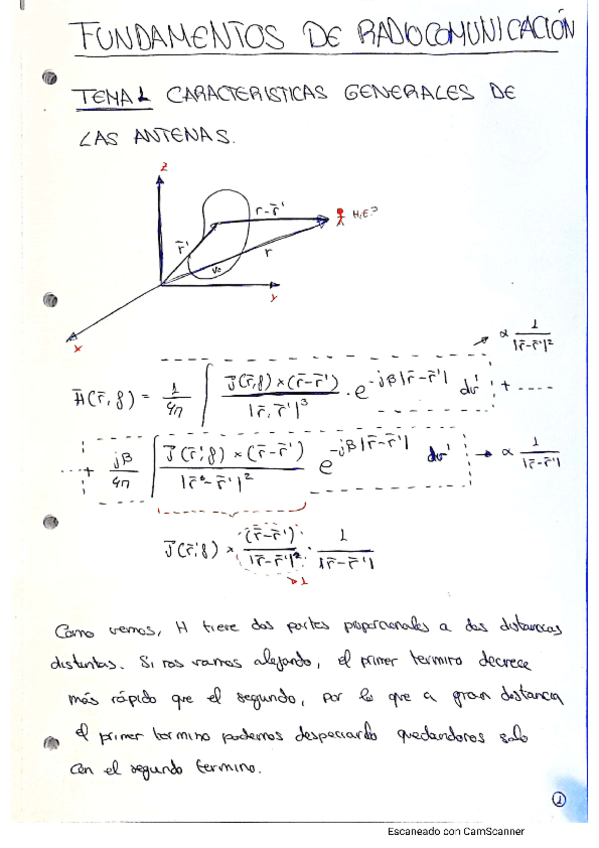 FUNDAMENTOS DE RADIOCOMUNICACIÓN
TEMA 1 CARACTERISTICAS GENERALES DE
LAS ANTENAS.
z
r̄-r̄'
H,E?
r̄'
r
V₀
y
x
∝ 1/|r̄-r̄'|²
H̄(r̄,f) = 1/4π ∫ J̄(r̄,f)×(r̄-r̄')/|r̄,r̄'|³ · e^-jβ|r̄-r̄'| dv' + ----
...+ jβ/4π ∫ J̄(r̄',f)×(r̄-r̄')/|r̄-r̄'|² e^-jβ|r̄-r̄'| dv' → ∝ 1/|r̄-r̄'|
J̄(r̄',f) × (r̄-r̄')/|r̄-r̄'|² · 1/|r̄-r̄'|
1
Como vemos, H tiene dos partes proporcionales a dos distancias
distintas. Si nos vamos alejando, el primer termino decrece
más rápido que el segundo, por lo que a gran distancia
el primer termino podemos despreciarlo quedandonos solo
con el segundo termino.
1
Escaneado con CamScanner